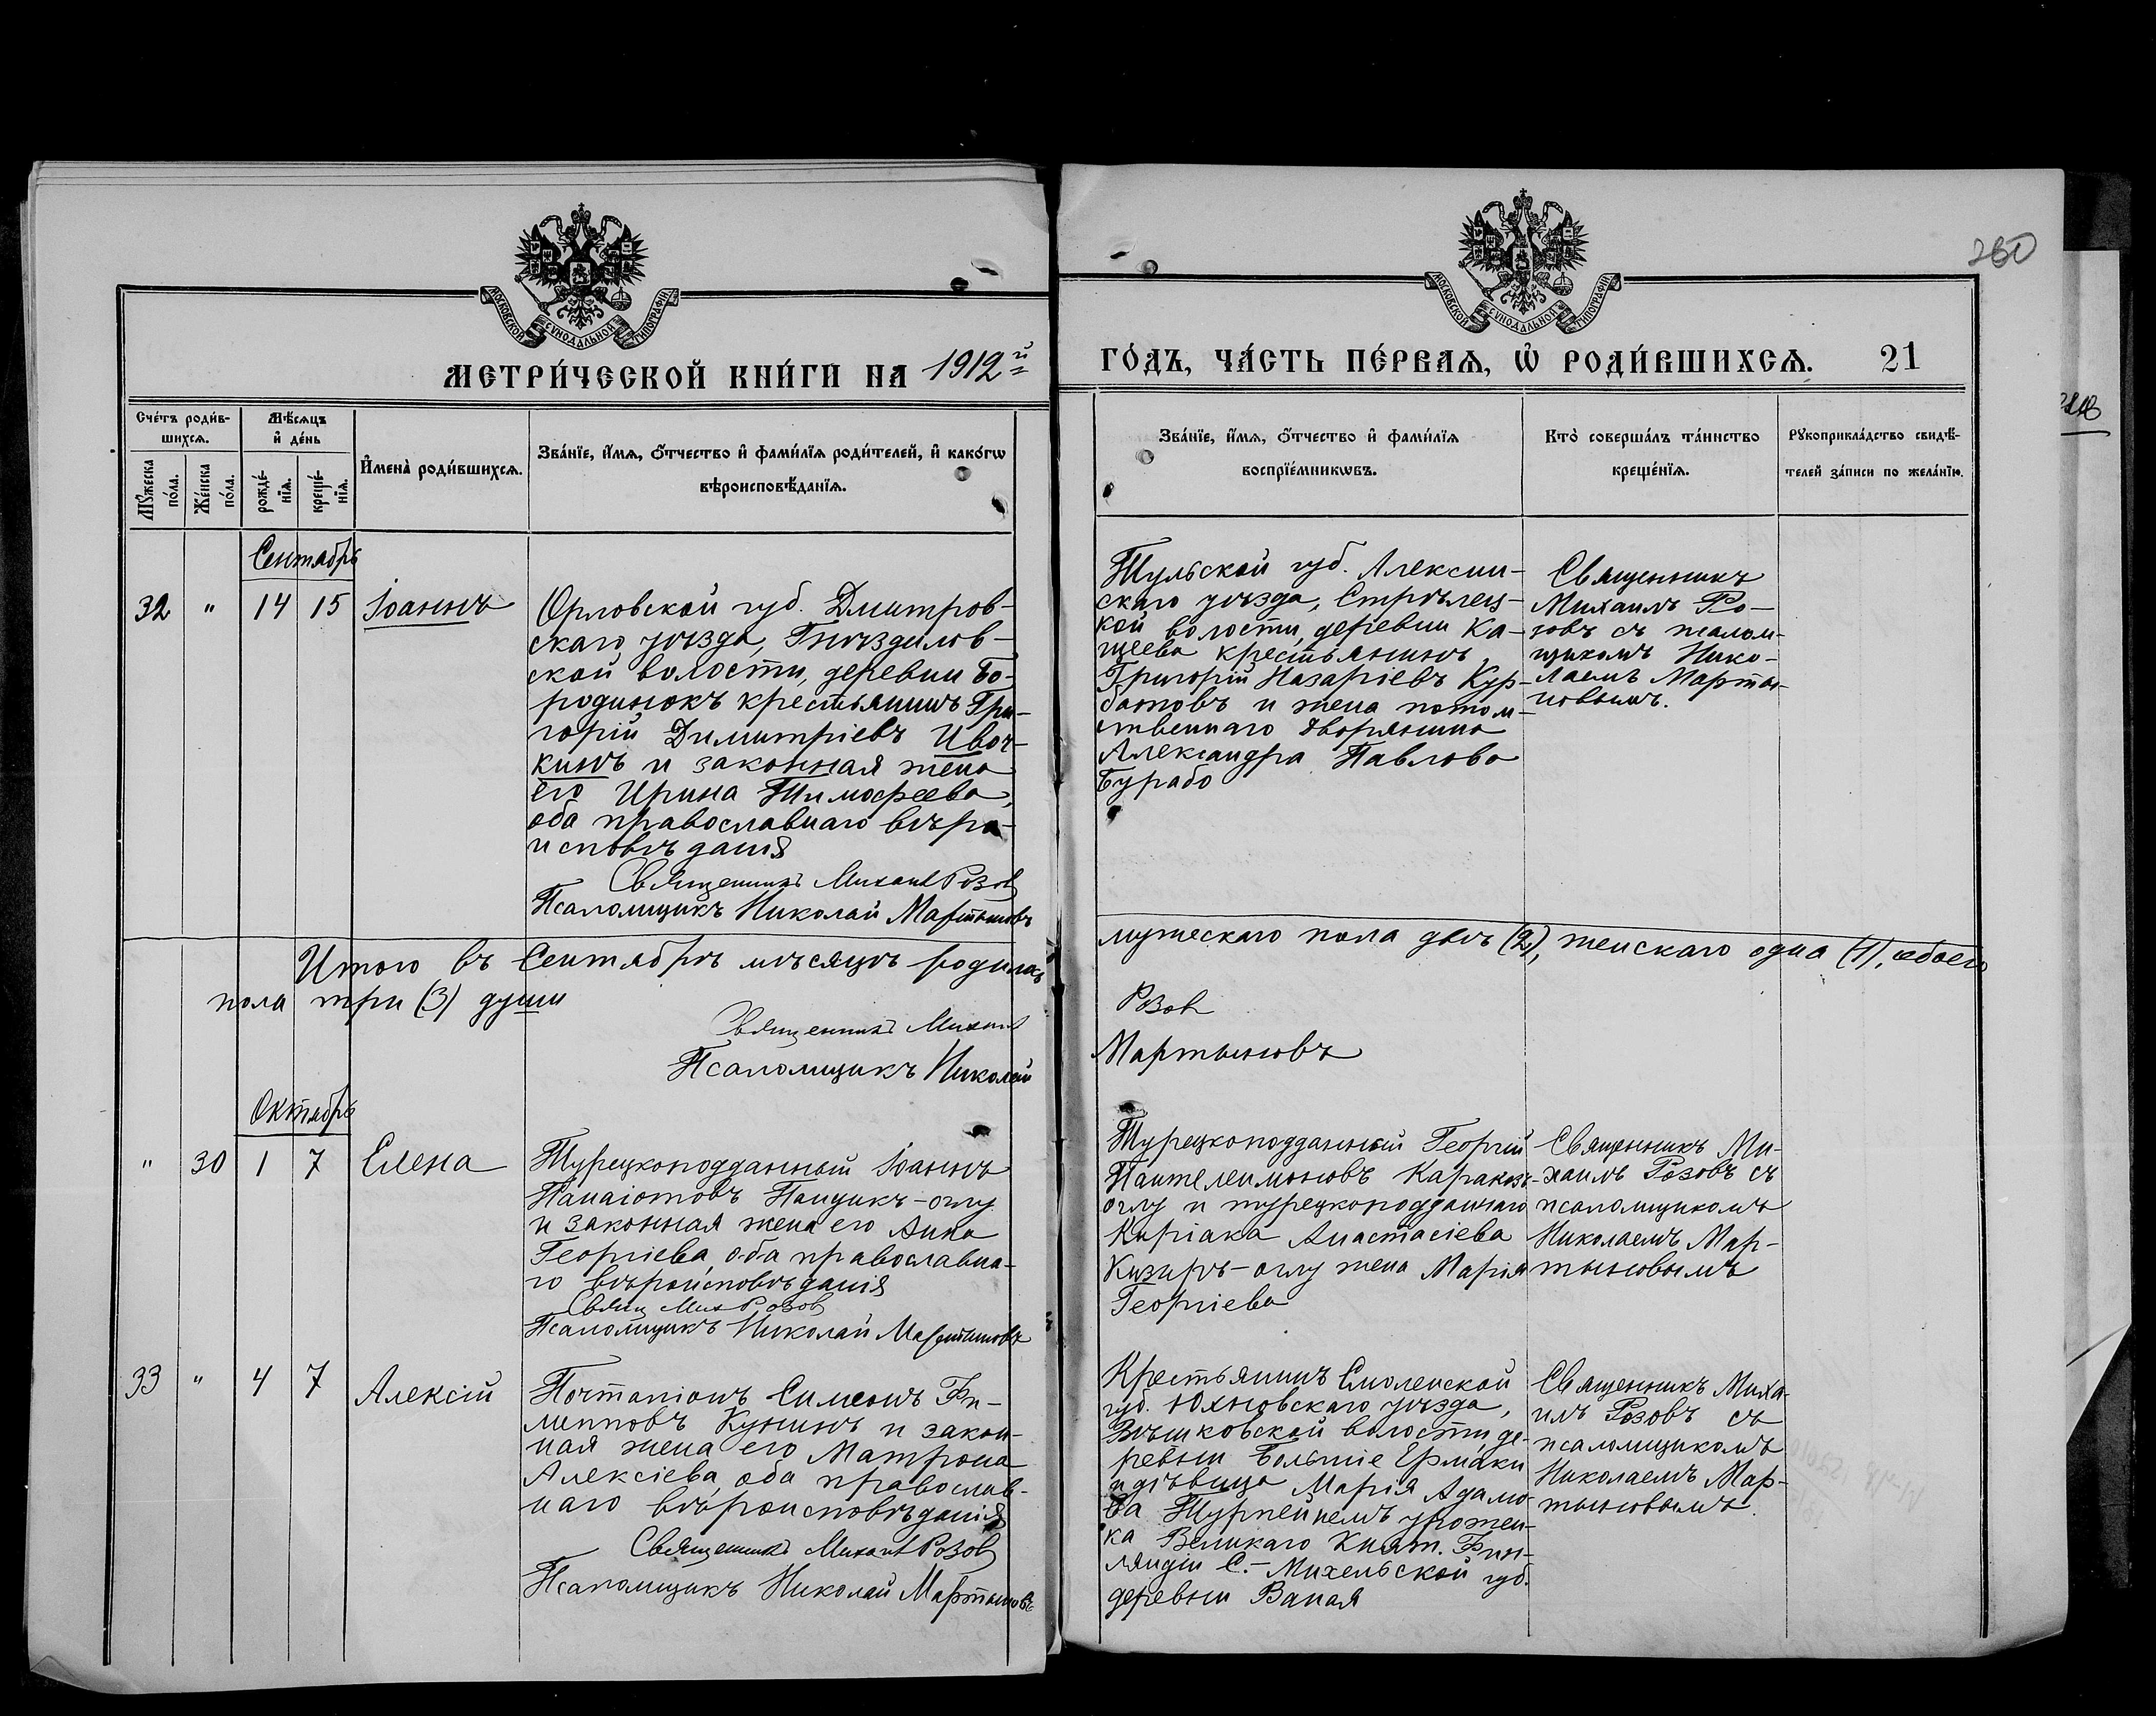 260
МОСКОВСКОЙ СѴНОДАЛЬНОЙ ТИПОГРАФІИ
МОСКОВСКОЙ СѴНОДАЛЬНОЙ ТИПОГРАФІИ
МЕТРИ́ЧЕСКОЙ КНИ́ГИ НА 1912й
ГО́ДЪ, ЧА́СТЬ ПЕ́РВАѦ, Ѡ҆ РОДИ́ВШИХСѦ. 21
Сче́тъ роди́в-
шихсѧ.
Мѣ́сѧцъ
и҆ де́нь
Мꙋ́жеска
по́ла.
Же́нска
по́ла.
рожде́-
нїѧ.
креще́-
нїѧ.
И҆мена̀ роди́вшихсѧ.
Зва́нїе, и҆́мѧ, ѻ҆́тчество и҆ фами́лїѧ роди́телей, и҆ како́гѡ
вѣроисповѣ́данїѧ.
Зва́нїе, и҆́мѧ, ѻ҆́тчество и҆ фами́лїѧ
воспрїе́мникѡвъ.
Кто̀ соверша́лъ та́инство
креще́нїѧ.
Рꙋкоприкла́дство свидѣ́-
телей за́писи по жела́нїю.
Сентябрь
32 " 14 15 Іоаннъ
Орловской губ. Дмитров-
скаго уѣзда, Гнѣздилов-
ской волости, деревни Бо-
родинокъ крестьянинъ Гри-
горій Димитріевъ Ивоч-
кинъ и законная жена
его Ирина Тимофеева,
оба православнаго вѣро-
исповѣданія
Священникъ Михаил Розов
Псаломщикъ Николай Мартыновъ
Тульской губ. Алексин-
скаго уѣзда, Стрѣлец-
кой волости, деревни Ка-
щеева крестьянинъ
Григорій Назаріевъ Кур-
батовъ и жена потом-
ственнаго дворянина
Александра Павлова
Бурабо
Священникъ
Михаилъ Ро-
зовъ съ псалом-
щикомъ Нико-
лаемъ Марты-
новымъ.
Итого въ Сентябрѣ мѣсяцѣ родилось
мужескаго пола двѣ (2), женскаго одна (1), обоего
пола три (3) души
Священникъ Михаил
Розов
Псаломщикъ Николай
Мартыновъ
Октябрь
" 30 1 7 Елена
Турецкоподданный Іоаннъ
Панаіотовъ Пандикъ-оглу
и законная жена его Анна
Георгіева, оба православна-
го вѣроисповѣданія
Свящ Мих Розов
Псаломщикъ Николай Мартыновъ
Турецкоподданный Георгій
Пантелеимоновъ Каракозъ-
оглу и турецкоподданнаго
Киріака Анастасіева
Кизиръ-оглу жена Марія
Георгіева
Священникъ Ми-
хаилъ Розовъ съ
псаломщикомъ
Николаемъ Мар-
тыновымъ
33 " 4 7 Алексій
Почталіонъ Симеонъ Фи-
липповъ Кунинъ и закон-
ная жена его Матрона
Алексіева, оба православ-
наго вѣроисповѣданія
Священникъ Михаил Розов
Псаломщикъ Николай Мартыновъ
Крестьянинъ Смоленской
губ. Юхновскаго уѣзда,
волости, де-
ревни Большіе Ермаки
и дѣвица Марія Адамо-
ва урожен-
ка Великаго Княж. Фин-
ляндіи С.-Михельской губ.
деревни Ваная
Священникъ Миха-
илъ Розовъ съ
псаломщикомъ
Николаемъ Мар-
тыновымъ.